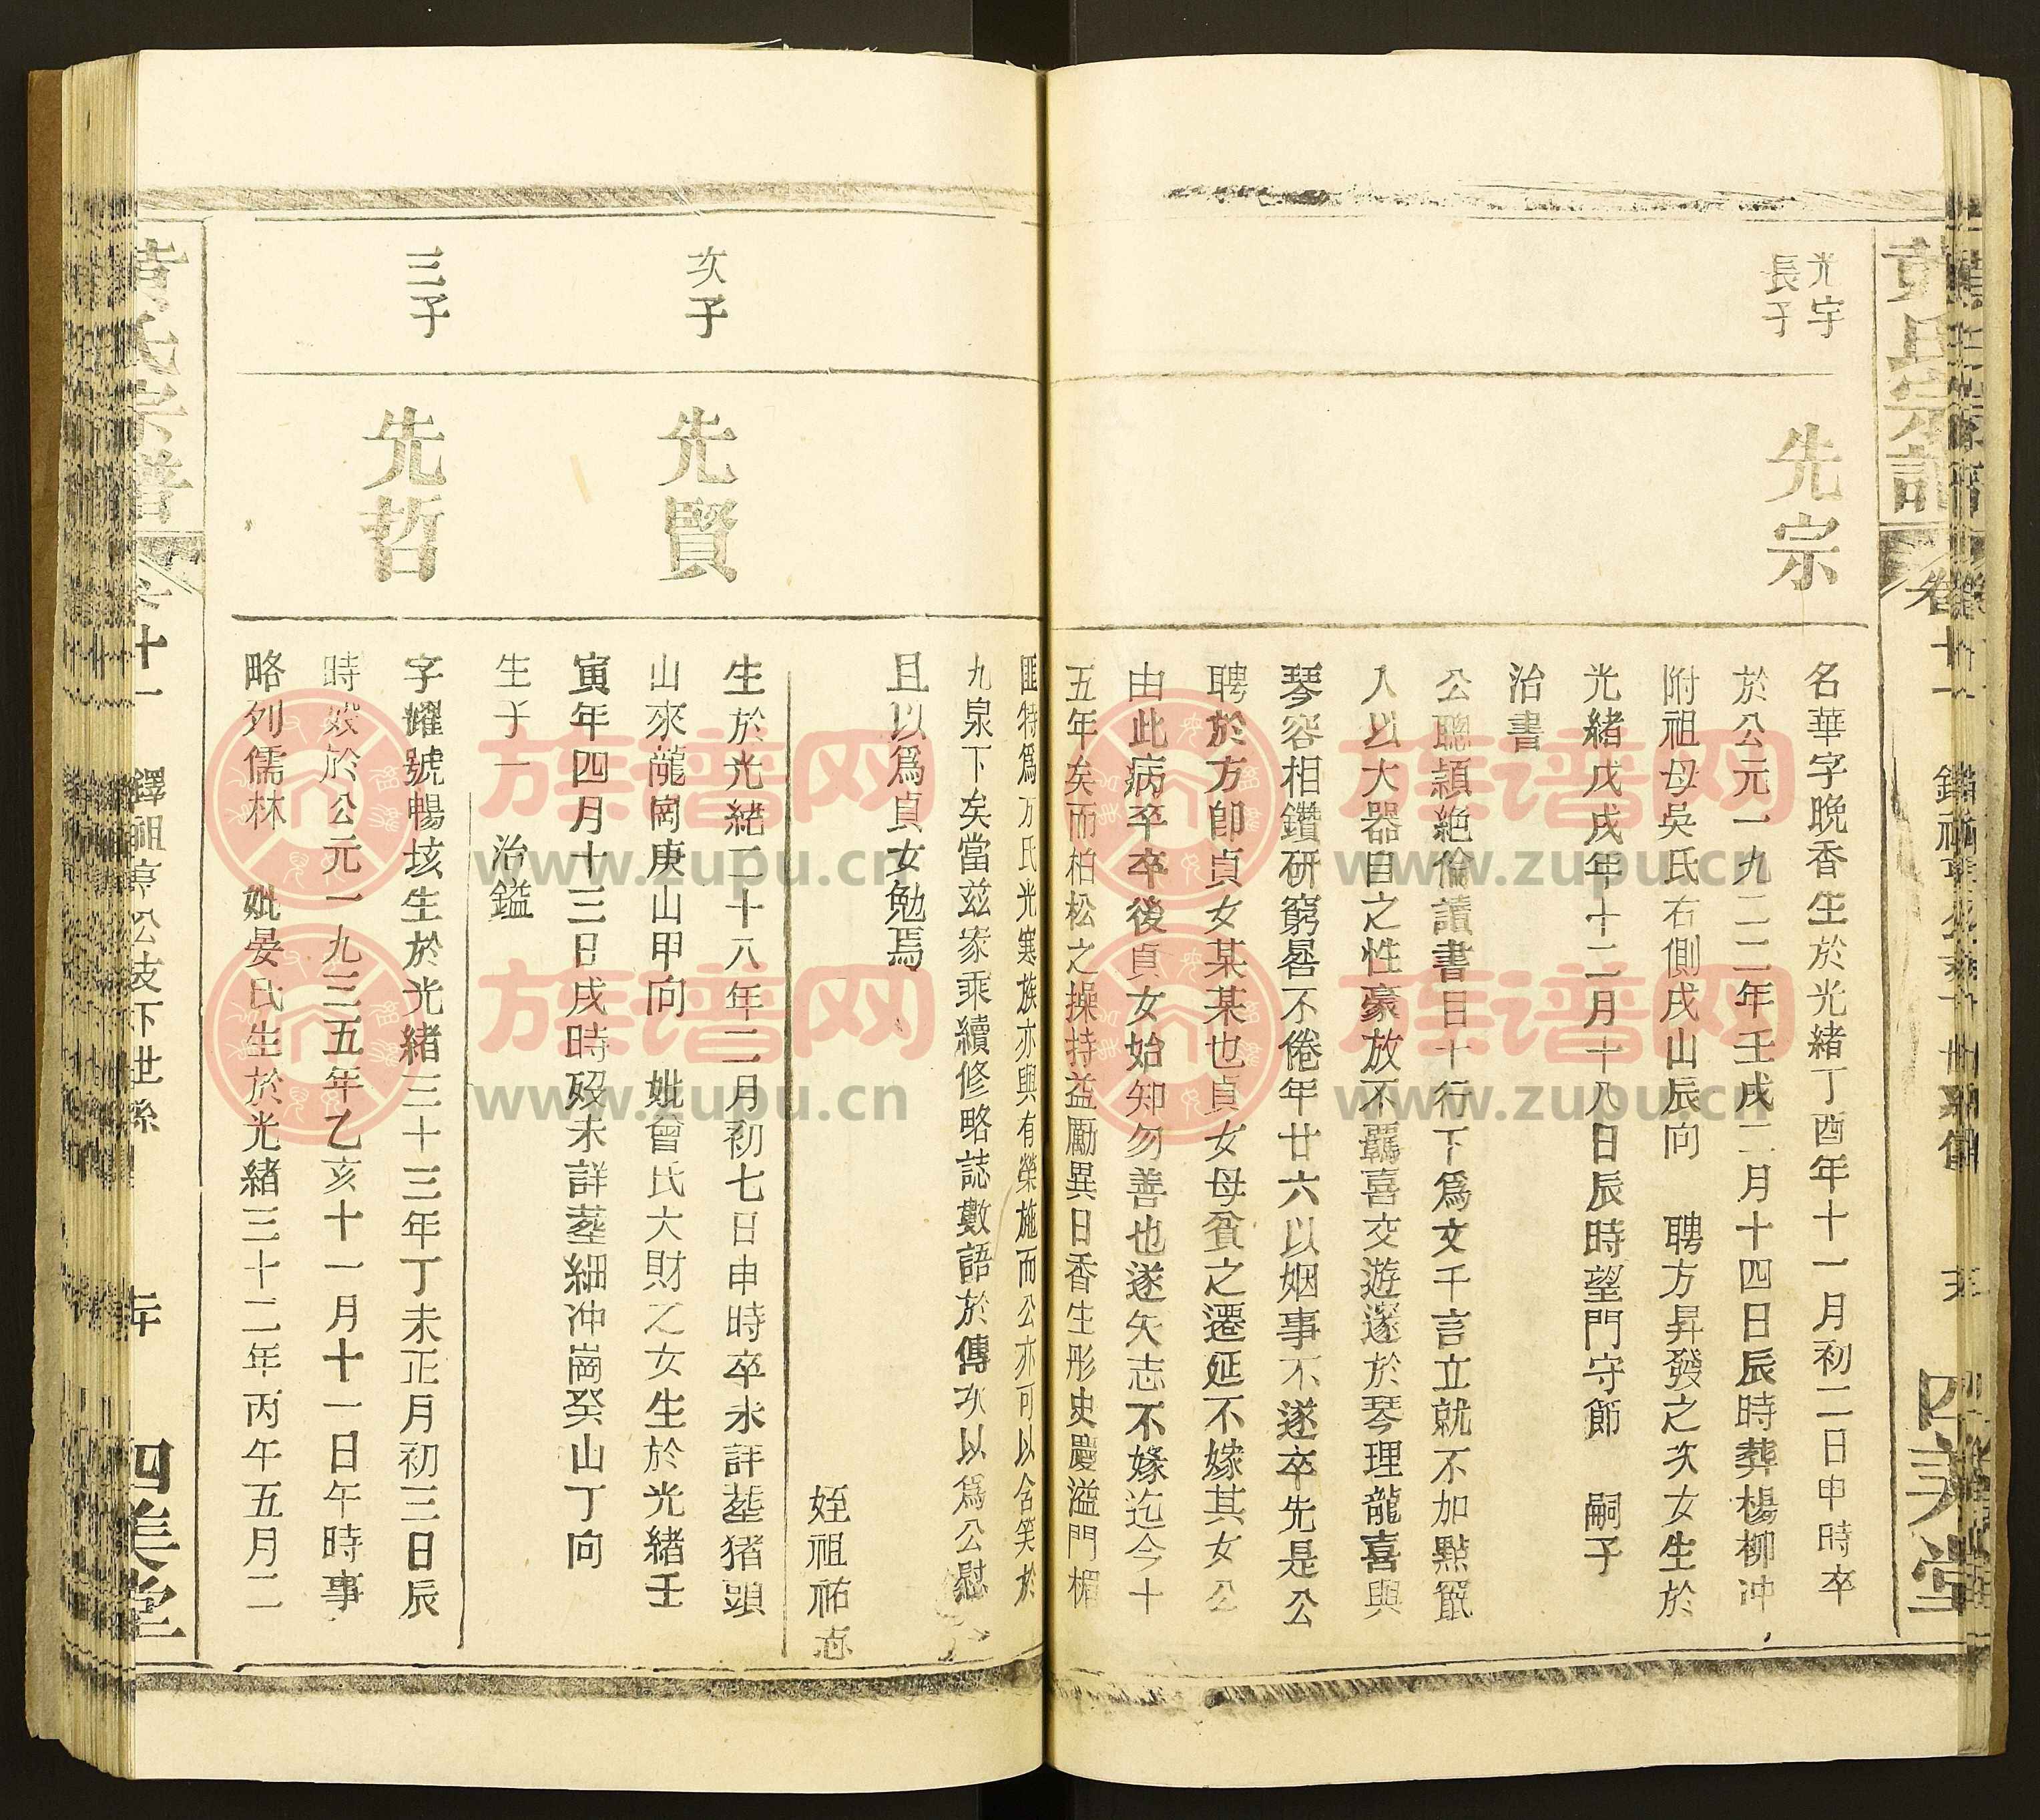 黃氏宗譜
卷十一
四美堂
光宇
長子
先宗
名華字晚香生於光緒丁酉年十一月初二日申時卒
於公元一九二二年壬戌二月十四日辰時葬楊柳冲
附祖母吳氏右側戌山辰向 聘方昇發之次女生於
光緒戊戌年十二月十八日辰時望門守節 嗣子
治書
公聰頴絶倫讀書目十行下爲文千言立就不加點竄
人以大器目之性豪放不羈喜交遊邃於琴理龍喜與
琴容相鑽研窮晷不倦年廿六以姻事不遂卒先是公
聘於方卽貞女某某也貞女母貧之遷延不嫁其女公
由此病卒卒後貞女始知勿善也遂矢志不嫁迄今十
五年矣而柏松之操持益勵異日香生彤史慶溢門楣
匪特爲方氏光寒族亦與有榮施而公亦可以含笑於
九泉下矣當兹家乘續修略誌數語於傳次以爲公慰
且以爲貞女勉焉
姪祖祐志
次子
先賢
生於光緒二十八年二月初七日申時卒未詳塟猪頭
山來龍崗庚山甲向 妣曾氏大財之女生於光緒壬
寅年四月十三日戌時歿未詳塟細冲崗癸山丁向
生子一 治鎰
三子
先哲
字耀號暢垓生於光緒三十三年丁未正月初三日辰
時歿於公元一九三五年乙亥十一月十一日午時事
略列儒林 妣晏氏生於光緒三十二年丙午五月二
黃氏宗譜
卷十一
鐸祖亭公支下世系
四美堂
族谱网
www.zupu.cn
族谱网
www.zupu.cn
族谱网
www.zupu.cn
族谱网
www.zupu.cn